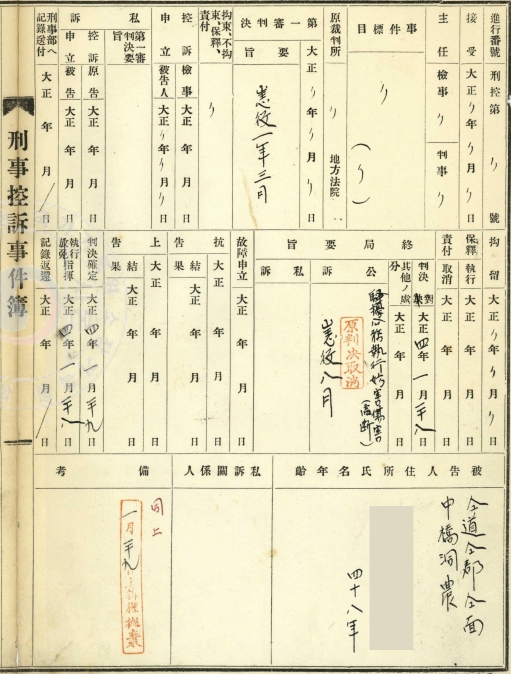 進行番號 刑控第 〃 號
接受 大正〃年〃月〃日
主任檢事 〃 判事 〃
事件標目 〃 (〃)
原裁判所 〃 地方法院
第一審判決要旨 大正〃年〃月〃日
懲役一年三月
拘束、不拘束、保釋、責付 〃
控訴申立 檢事 大正〃年〃月〃日
被告人 大正 年 月 日
私訴 第一審判決要旨
控訴申立 原告 大正 年 月 日
被告 大正 年 月 日
刑事部へ記錄送付 大正 年 月 日
刑事控訴事件簿
拘留 大正〃年〃月〃日
保釋 執行 大正 年 月 日
責付 取消 大正 年 月 日
終局要旨
判決 對缺 大正四年一月廿八日
其他ノ處分 大正 年 月 日
公訴
騷擾公務執行妨害傷害
原判決取消
懲役八月
私訴
故障申立 大正 年 月 日
抗告 大正 年 月 日
結果
上告 大正 年 月 日
結果
判決確定 大正四年一月廿九日
執行指揮 放免 大正四年一月廿八日
記錄返還 大正 年 月 日
被告人住所氏名年齡
仝道仝郡仝面
中橋洞農
四十八年
私訴關係人
備考
同上
一月廿九